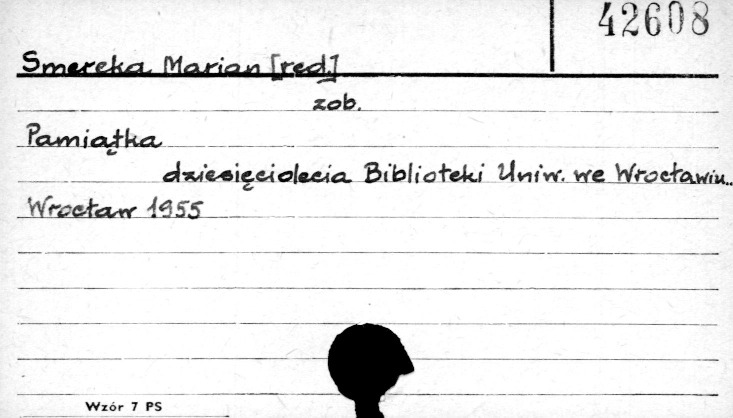 42608
Smereka Marian [red.]
zob.
Pamiątka
dziesięciolecia Biblioteki Uniw. we Wrocławiu..
Wrocław 1955
Wzór 7 PS